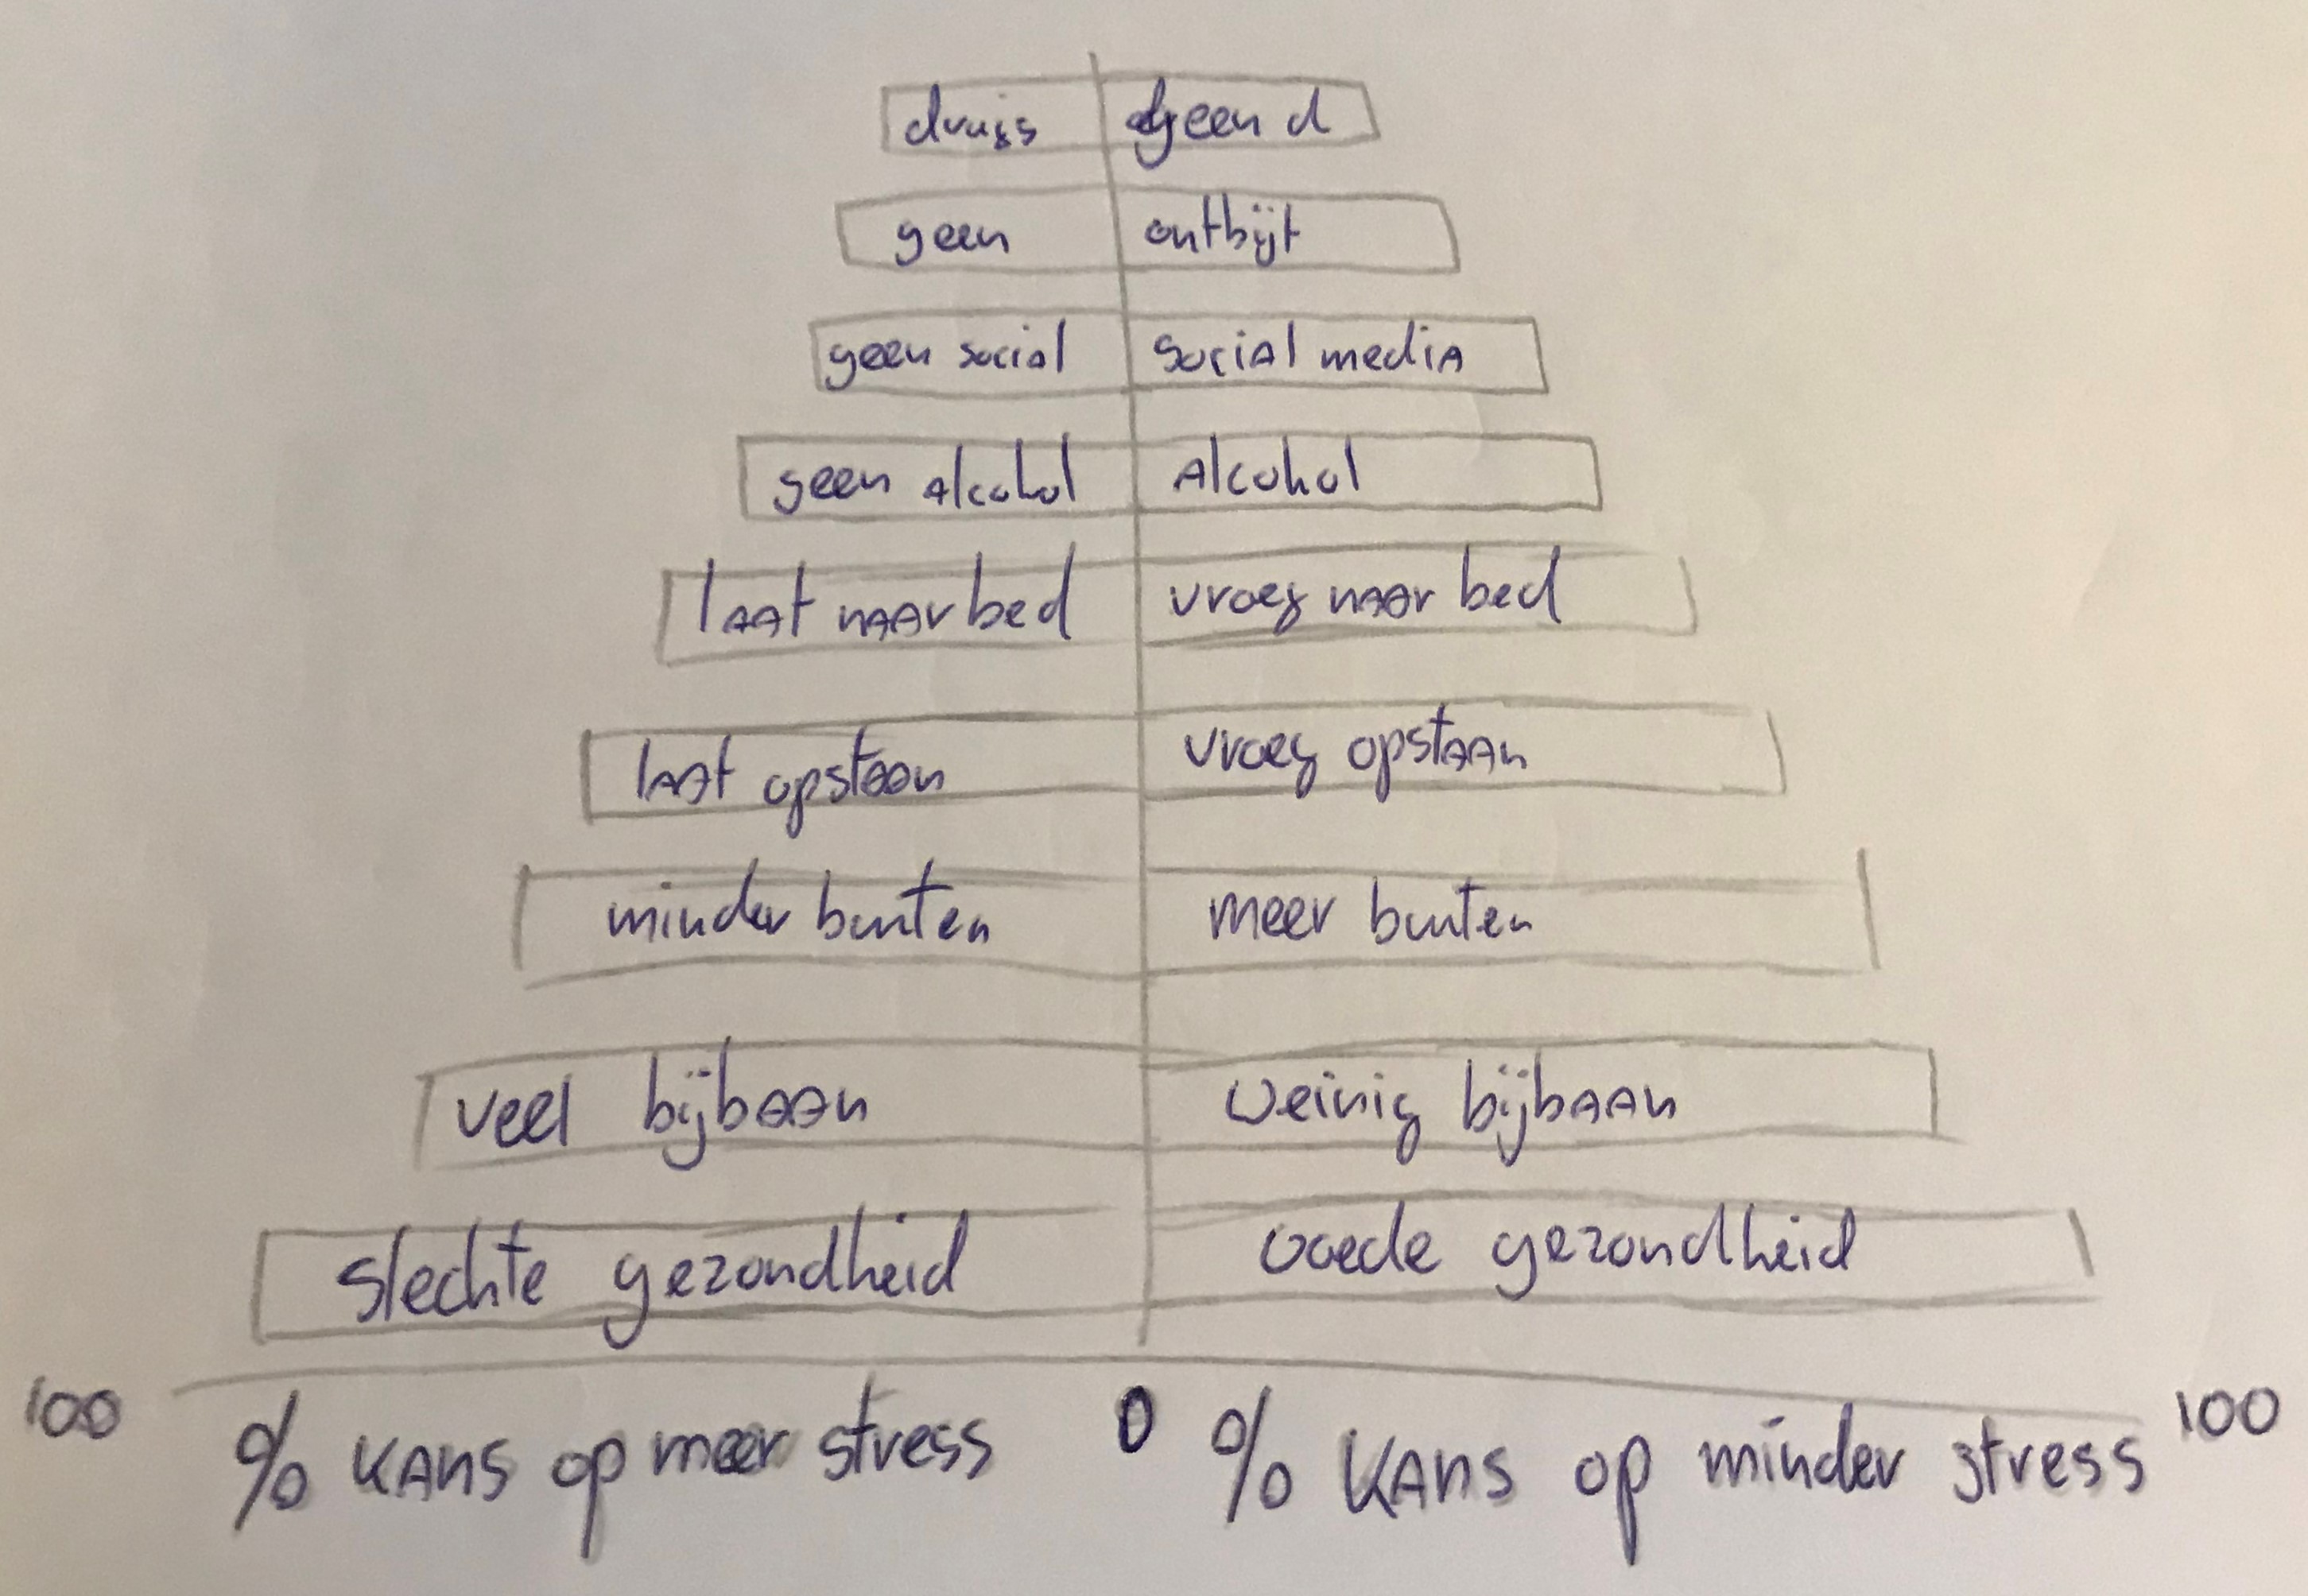 drugs geen d
geen ontbijt
geen social social media
geen alcohol Alcohol
laat naar bed vroeg naar bed
laat opstaan vroeg opstaan
minder buiten meer buiten
veel bijbaan weinig bijbaan
slechte gezondheid goede gezondheid
100 % kans op meer stress 0 % kans op minder stress 100